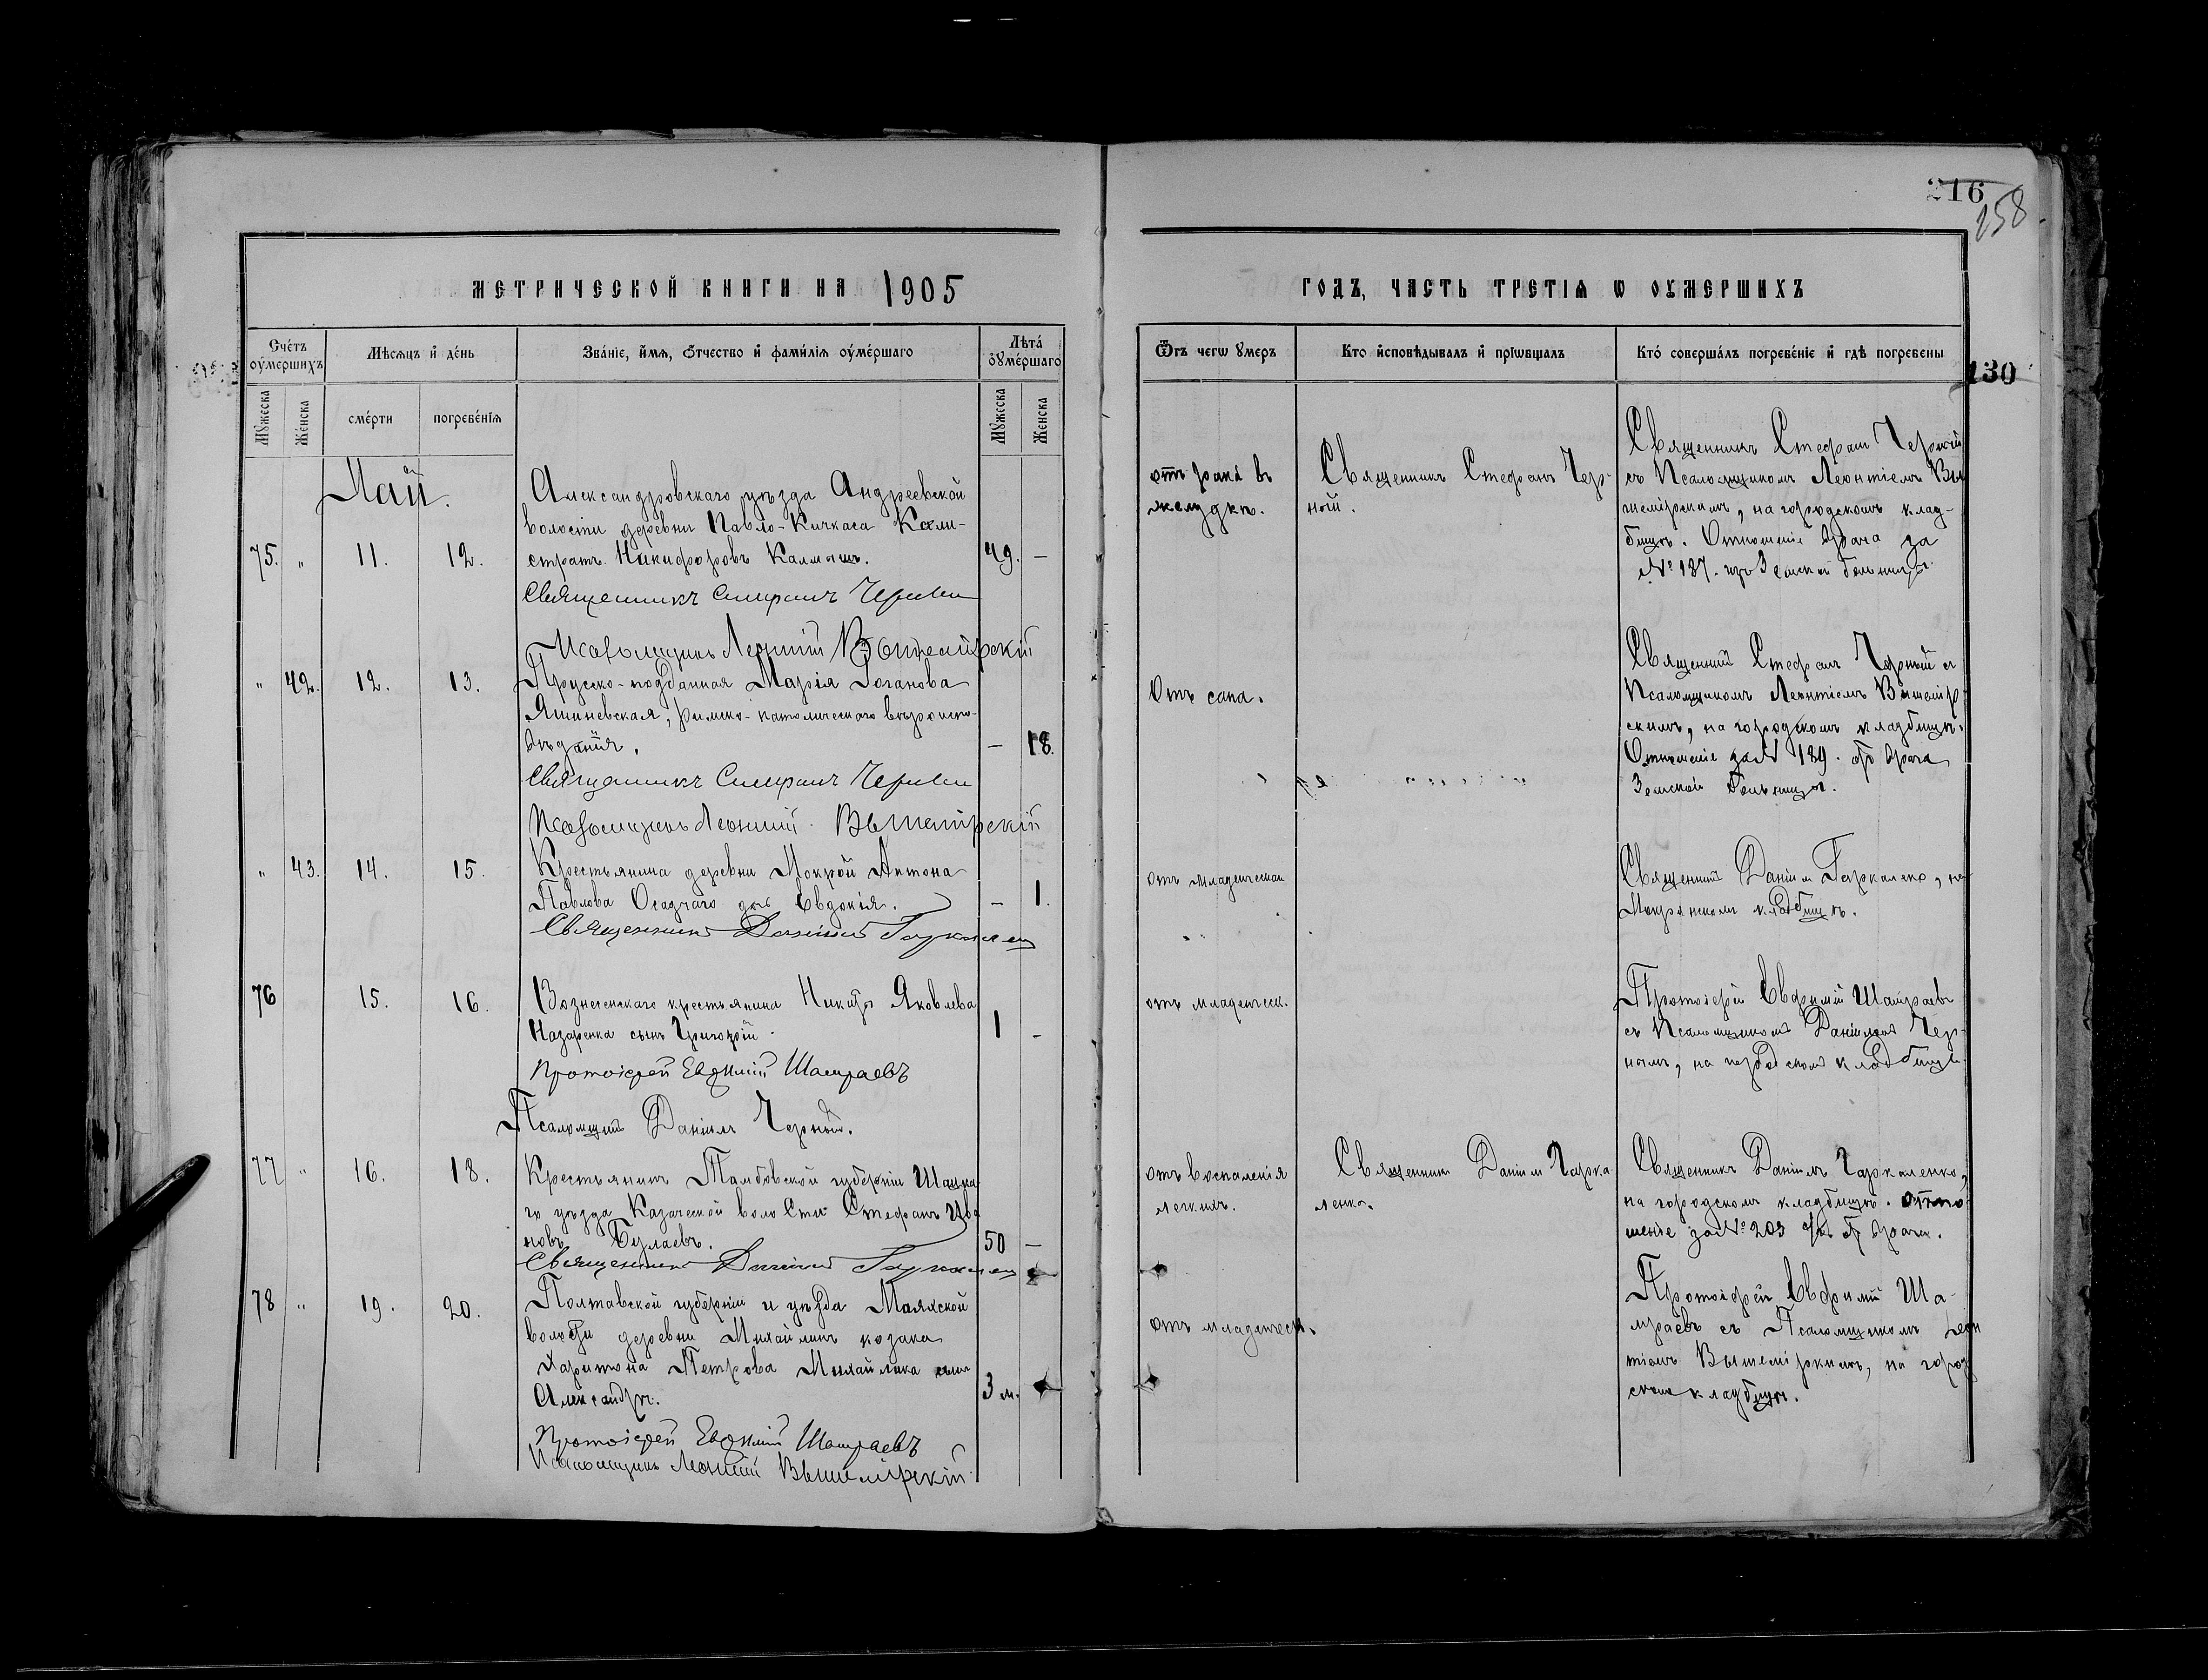 216
158
МЕТРИЧЕСКОЙ КНИГИ НА 1905
ГОДЪ, ЧАСТЬ ТРЕТІѦ Ѡ ОУМЕРШИХЪ
130
Счетъ оумершихъ
Мѣсѧцъ и день
Званіе, имѧ, отчество и фамиліѧ оумершаго
Лѣта оумершаго
Мужеска
Женска
смерти
погребеніѧ
Мужеска
Женска
Ѿъ чегѡ умеръ
Кто исповѣдывалъ и пріѡбщалъ
Кто совершалъ погребеніе и гдѣ погребены
Май.
75. " 11. 12.
Александровскаго уѣзда Андреевской
волости деревни Павло-Кичкаса Кали-
стратъ Никифоровъ Калмыш.
49. –
Священникъ Стефанъ Черный
Псаломщикъ Леонтій Вышемірскій
отъ рака въ
желудкѣ.
Священникъ Стефанъ Чер-
ный.
Священникъ Стефан Черный
съ Псаломщикомъ Леонтіемъ Вы
шемірскимъ, на городскомъ клад-
бищѣ. Отношеніе врача за
№ 187. изъ Земской больницы.
" 42. 12. 13.
Прусско-подданная Марія Іоганова
Яшиневская, римско-католическаго вѣроиспо-
вѣданія.
– 18.
Священникъ Стефанъ Черный
Псаломщикъ Леонтій Вышемірскій
Отъ сапа.
Священникъ Стефанъ Черный съ
Псаломщикомъ Леонтіемъ Вышемір
скимъ, на городскомъ кладбищѣ.
Отношеніе за № 189. отъ врача
Земской больницы.
" 43. 14. 15.
Крестьянина деревни Мокрой Антона
Павлова Осадчаго дочь Евдокія.
– 1.
Священникъ Даніилъ Гаркаленко
отъ младенческой
Священникъ Даніил Гаркаленко, на
Мокрянском кладбищѣ.
76 15. 16.
Вознесенскаго крестьянина Никиты Яковлева
Назаренка сынъ Григорій.
1 –
Протоіерей Евфимій Шамраевъ
Псаломщикъ Даніилъ Черный.
отъ младенческ.
Протоіерей Евфимій Шамраевъ
съ Псаломщикомъ Даніиломъ Чер-
нымъ, на городскомъ кладбищѣ.
77 " 16. 18.
Крестьянинъ Тамбовской губерніи Шацка
го уѣзда Казаческой волости Стефанъ Ива
новъ Булаевъ.
50 –
Священникъ Даніилъ Гаркаленко
отъ воспаленія
легкихъ.
Священник Даніил Гарка
ленко.
Священникъ Даніилъ Гаркаленко,
на городскомъ кладбищѣ. Отно
шеніе за № 203 отъ врача.
78 " 19. 20.
Полтавской губерніи и уѣзда Маякской
волости деревни Михайликъ козака
Харитона Петрова Михайлика сынъ
Александръ.
3 м.
Протоіерей Евфимій Шамраевъ
Псаломщикъ Леонтій Вышемірскій
отъ младенческ.
Протоіерей Евфимій Ша-
мраевъ съ Псаломщикомъ Леон
тіемъ Вышемірскимъ, на город
скомъ кладбищѣ.